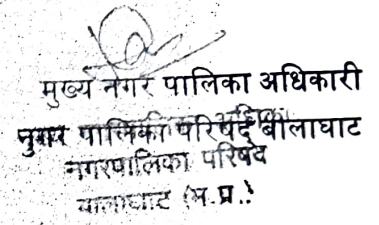 मुख्य नगर पालिका अधिकारी
नगर पालिका परिषद बालाघाट
नगरपालिका परिषद
बालाघाट (म.प्र.)